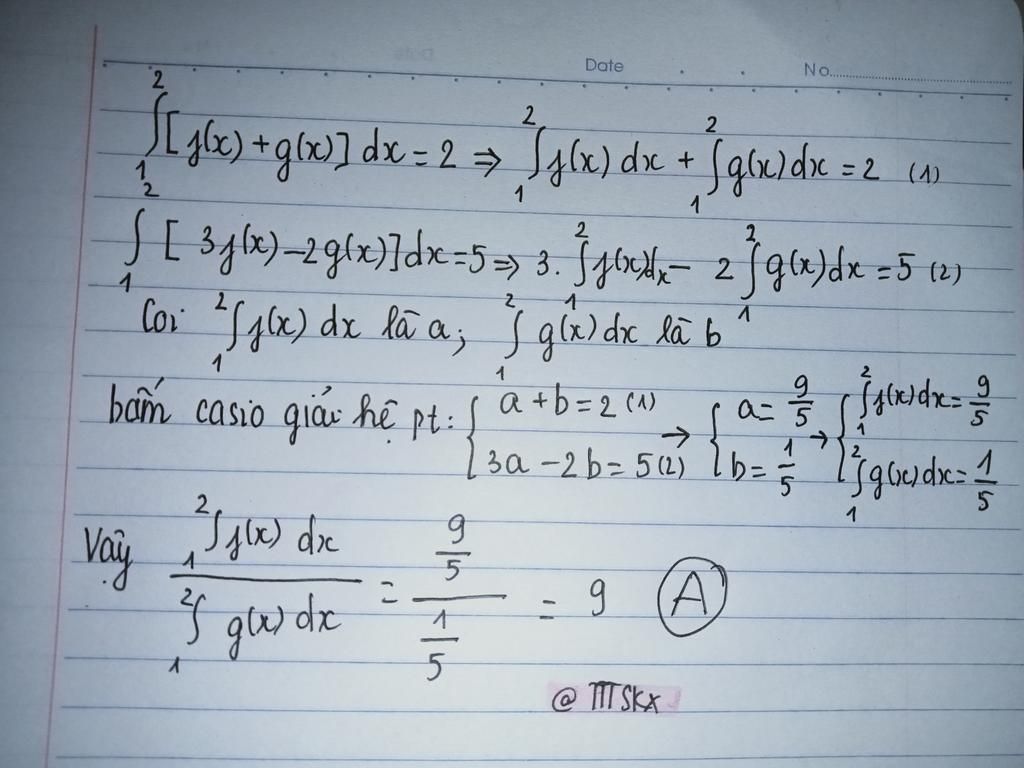 Date No
∫₁² [f(x) + g(x)] dx = 2 ⇒ ∫₁² f(x) dx + ∫₁² g(x) dx = 2 (1)
∫₁² [3f(x) – 2g(x)] dx = 5 ⇒ 3. ∫₁² f(x) dx – 2 ∫₁² g(x) dx = 5 (2)
Coi ∫₁² f(x) dx là a; ∫₁² g(x) dx là b
bấm casio giải hệ pt: { a + b = 2 (1) ; 3a – 2b = 5 (2) → { a = 9/5 ; b = 1/5 → { ∫₁² f(x) dx = 9/5 ; ∫₁² g(x) dx = 1/5
Vậy (∫₁² f(x) dx) / (∫₁² g(x) dx) = (9/5) / (1/5) = 9 Ⓐ
@ TTTSKX